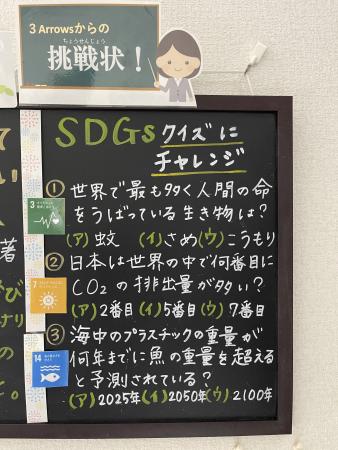 3 Arrowsからの
ちょうせんじょう
挑戦状!
SDGs クイズに
チャレンジ
① 世界で最も多く人間の命
をうばっている生き物は?
(ア)蚊 (イ)さめ(ウ)こうもり
② 日本は世界の中で何番目に
CO₂の排出量が多い?
(ア)2番目(イ)5番目(ウ)7番目
③ 海中のプラスチックの重量が
何年までに魚の重量を超える
と予測されている?
(ア)2025年(イ)2050年(ウ)2100年
3
7
14